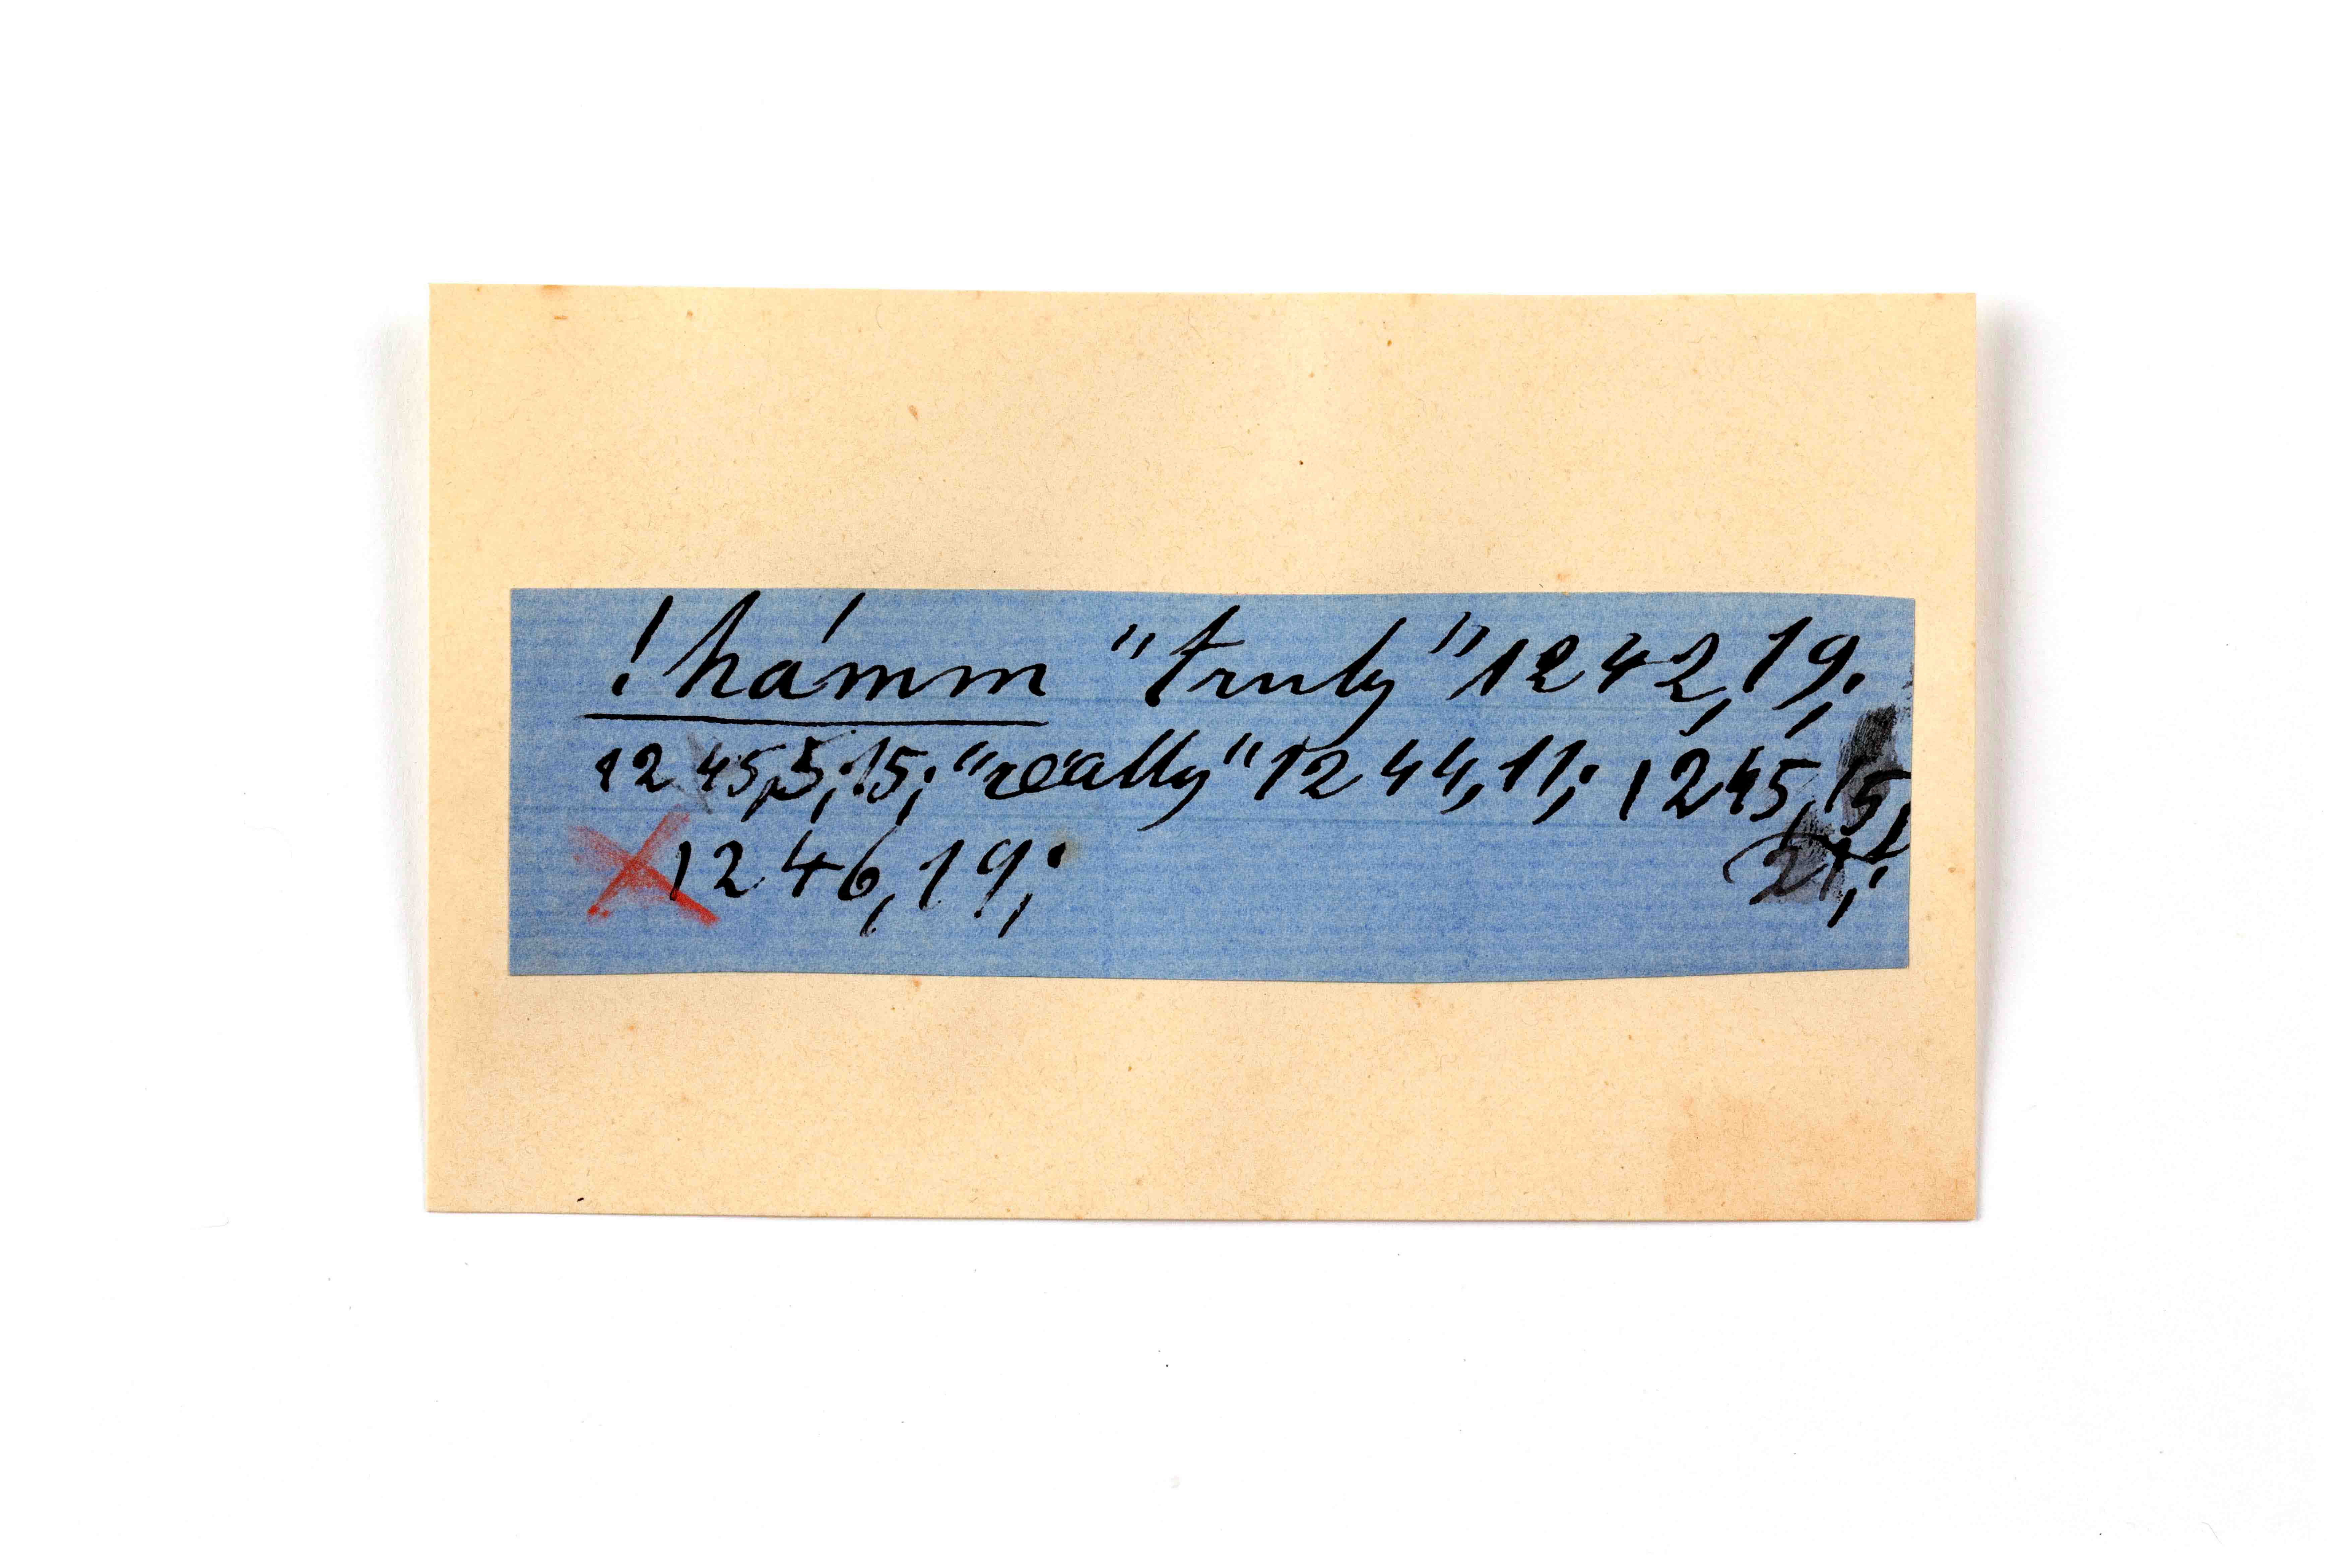 !hámm "truly" 1242, 19;
1245, 5, 15; "really" 1244, 11; 1245, 15,
1246, 19; 21;